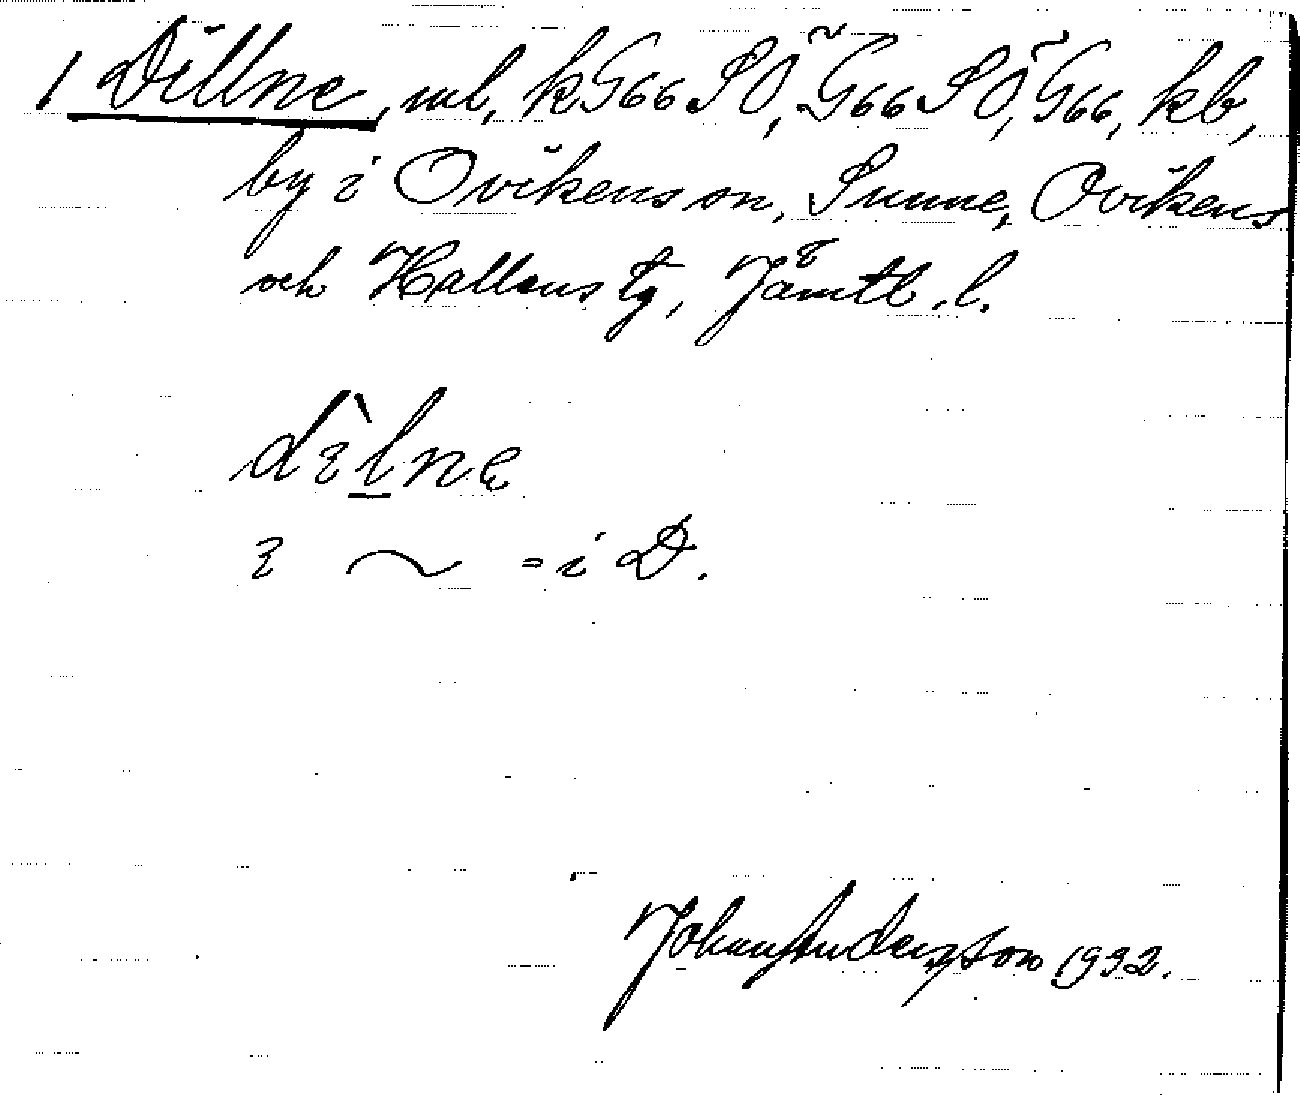 1 Dillne, ml, kG66SÖ, G66SÖ, G66, kb,
by i Ovikens sn, Sunne, Ovikens
och Hallens tg, Jämtl. l.
dìlnę
i ~ = i D.
Johan Anderzson 1932.